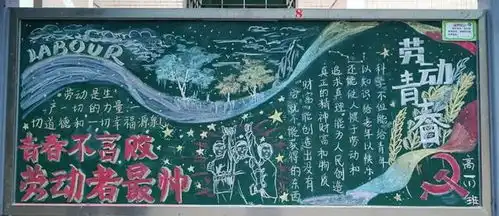 8
LABOUR
劳动是生
产一切的力量
切道德和一切幸福源泉
青春不言败
劳动者最帅
科学不但能给青年
以知识给老年以快乐
还能使人惯于劳动和
追求真理能为人民创造
真正的精神财富和物质
财富能创造出没有
它就不能获得的东西
劳动
青春
高一(1)班